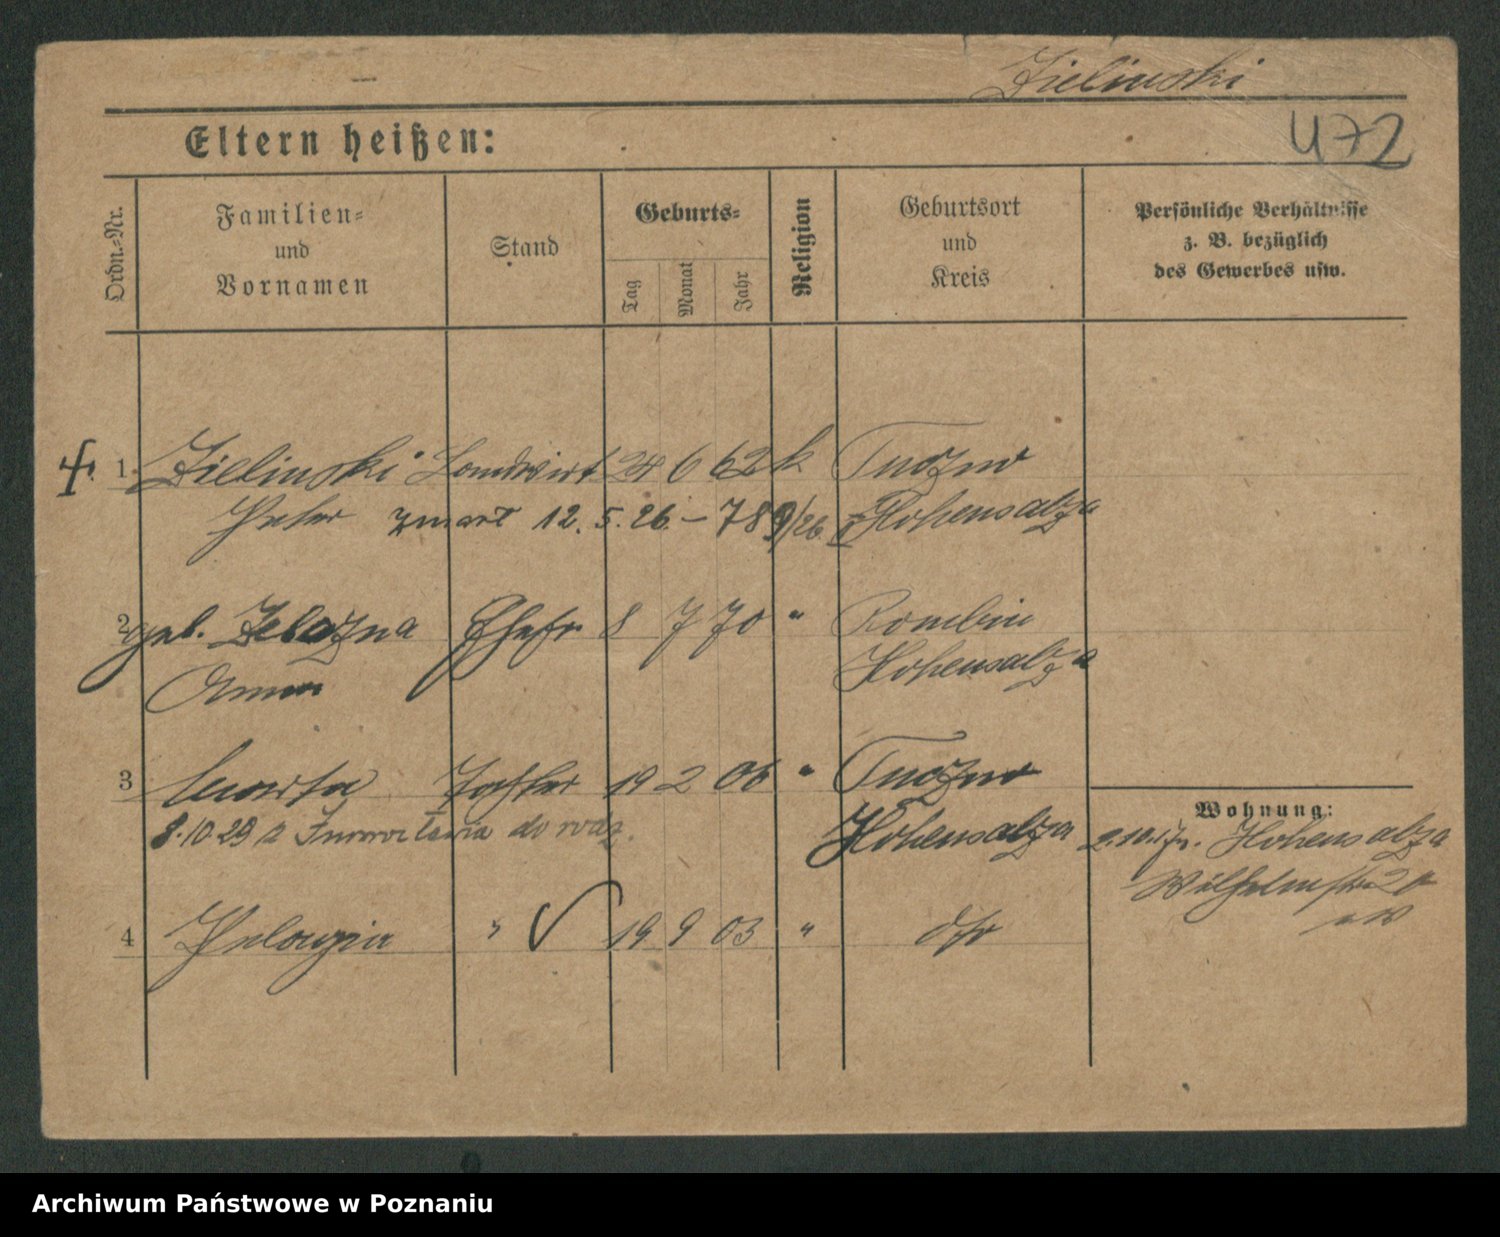 Zielinski
472
Eltern heißen:
Ordn.-Nr.
Familien-
und
Vornamen
Stand
Geburts-
Tag
Monat
Jahr
Religion
Geburtsort
und
Kreis
Persönliche Verhältnisse
z. B. bezüglich
des Gewerbes usw.
1 Zielinski Landwirt 24 6 62 k Tuczno
Peter zmarł 12. 5. 26 – 789/26 Hohensalza
2 geb. Zelazna Ehefr 8 7 70 " Rombin
Anna Hohensalza
3 Marta Tochter 19 2 06 " Tuczno
8.10.29 z Inowrocławia do Hohensalza
Wohnung:
Hohensalza
Wilhelmstr
4 Pelagia " 19 9 03 " dto
Archiwum Państwowe w Poznaniu